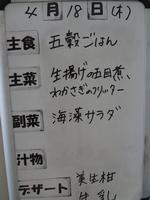 4月18日(木)
主食 五穀ごはん
主菜 生揚げの五目煮、
わかさぎのフリッター
副菜 海藻サラダ
汁物
デザート 美生柑
牛乳